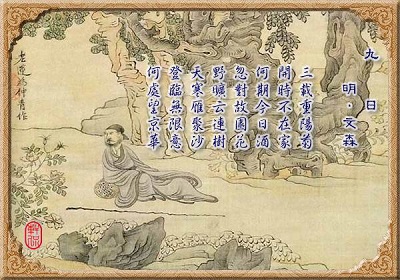 九日
明·文森
三載重陽菊
開時不在家
何期今日酒
忽對故園花
野曠云連樹
天寒雁聚沙
登臨無限意
何處望京華